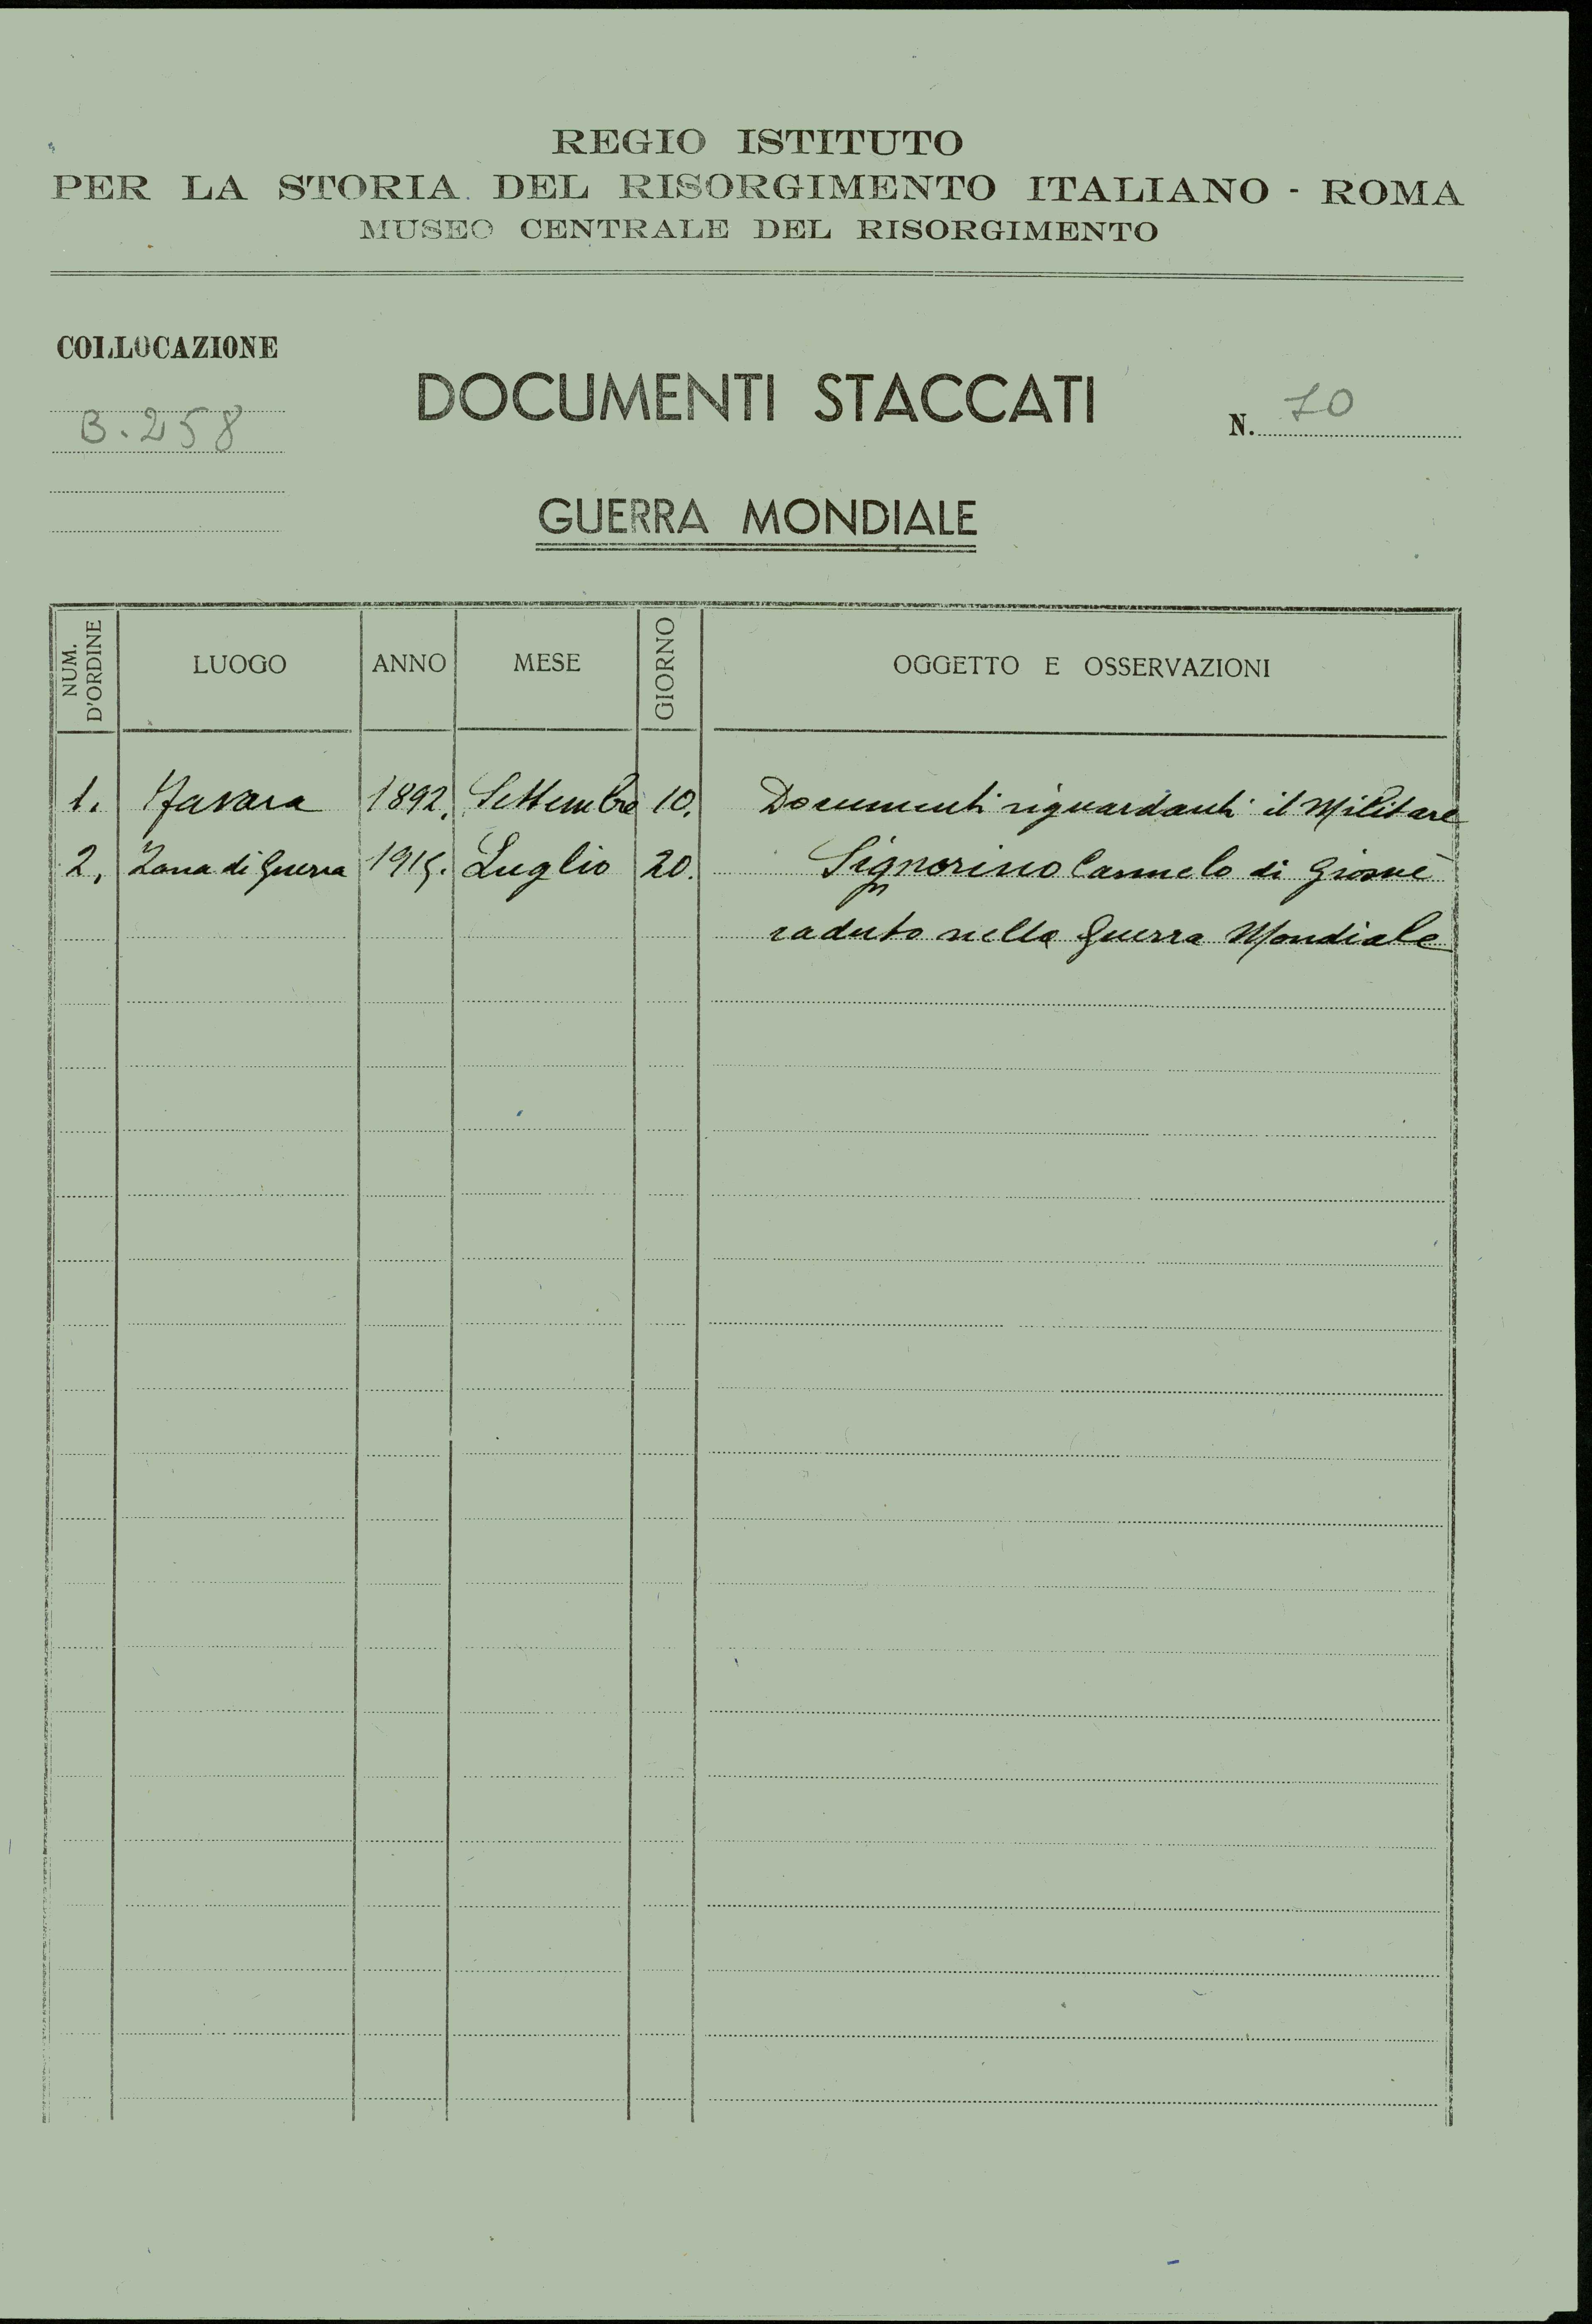 REGIO ISTITUTO
PER LA STORIA DEL RISORGIMENTO ITALIANO - ROMA
MUSEO CENTRALE DEL RISORGIMENTO
COLLOCAZIONE
B. 258
DOCUMENTI STACCATI
N. 70
GUERRA MONDIALE
NUM. D'ORDINE LUOGO ANNO MESE GIORNO OGGETTO E OSSERVAZIONI
1. Navara 1892. Settembre 10. Documenti riguardanti il Militare
2. Zona di Guerra 1915. Luglio 20. Signorino Carmelo di Giosuè
caduto nella Guerra Mondiale